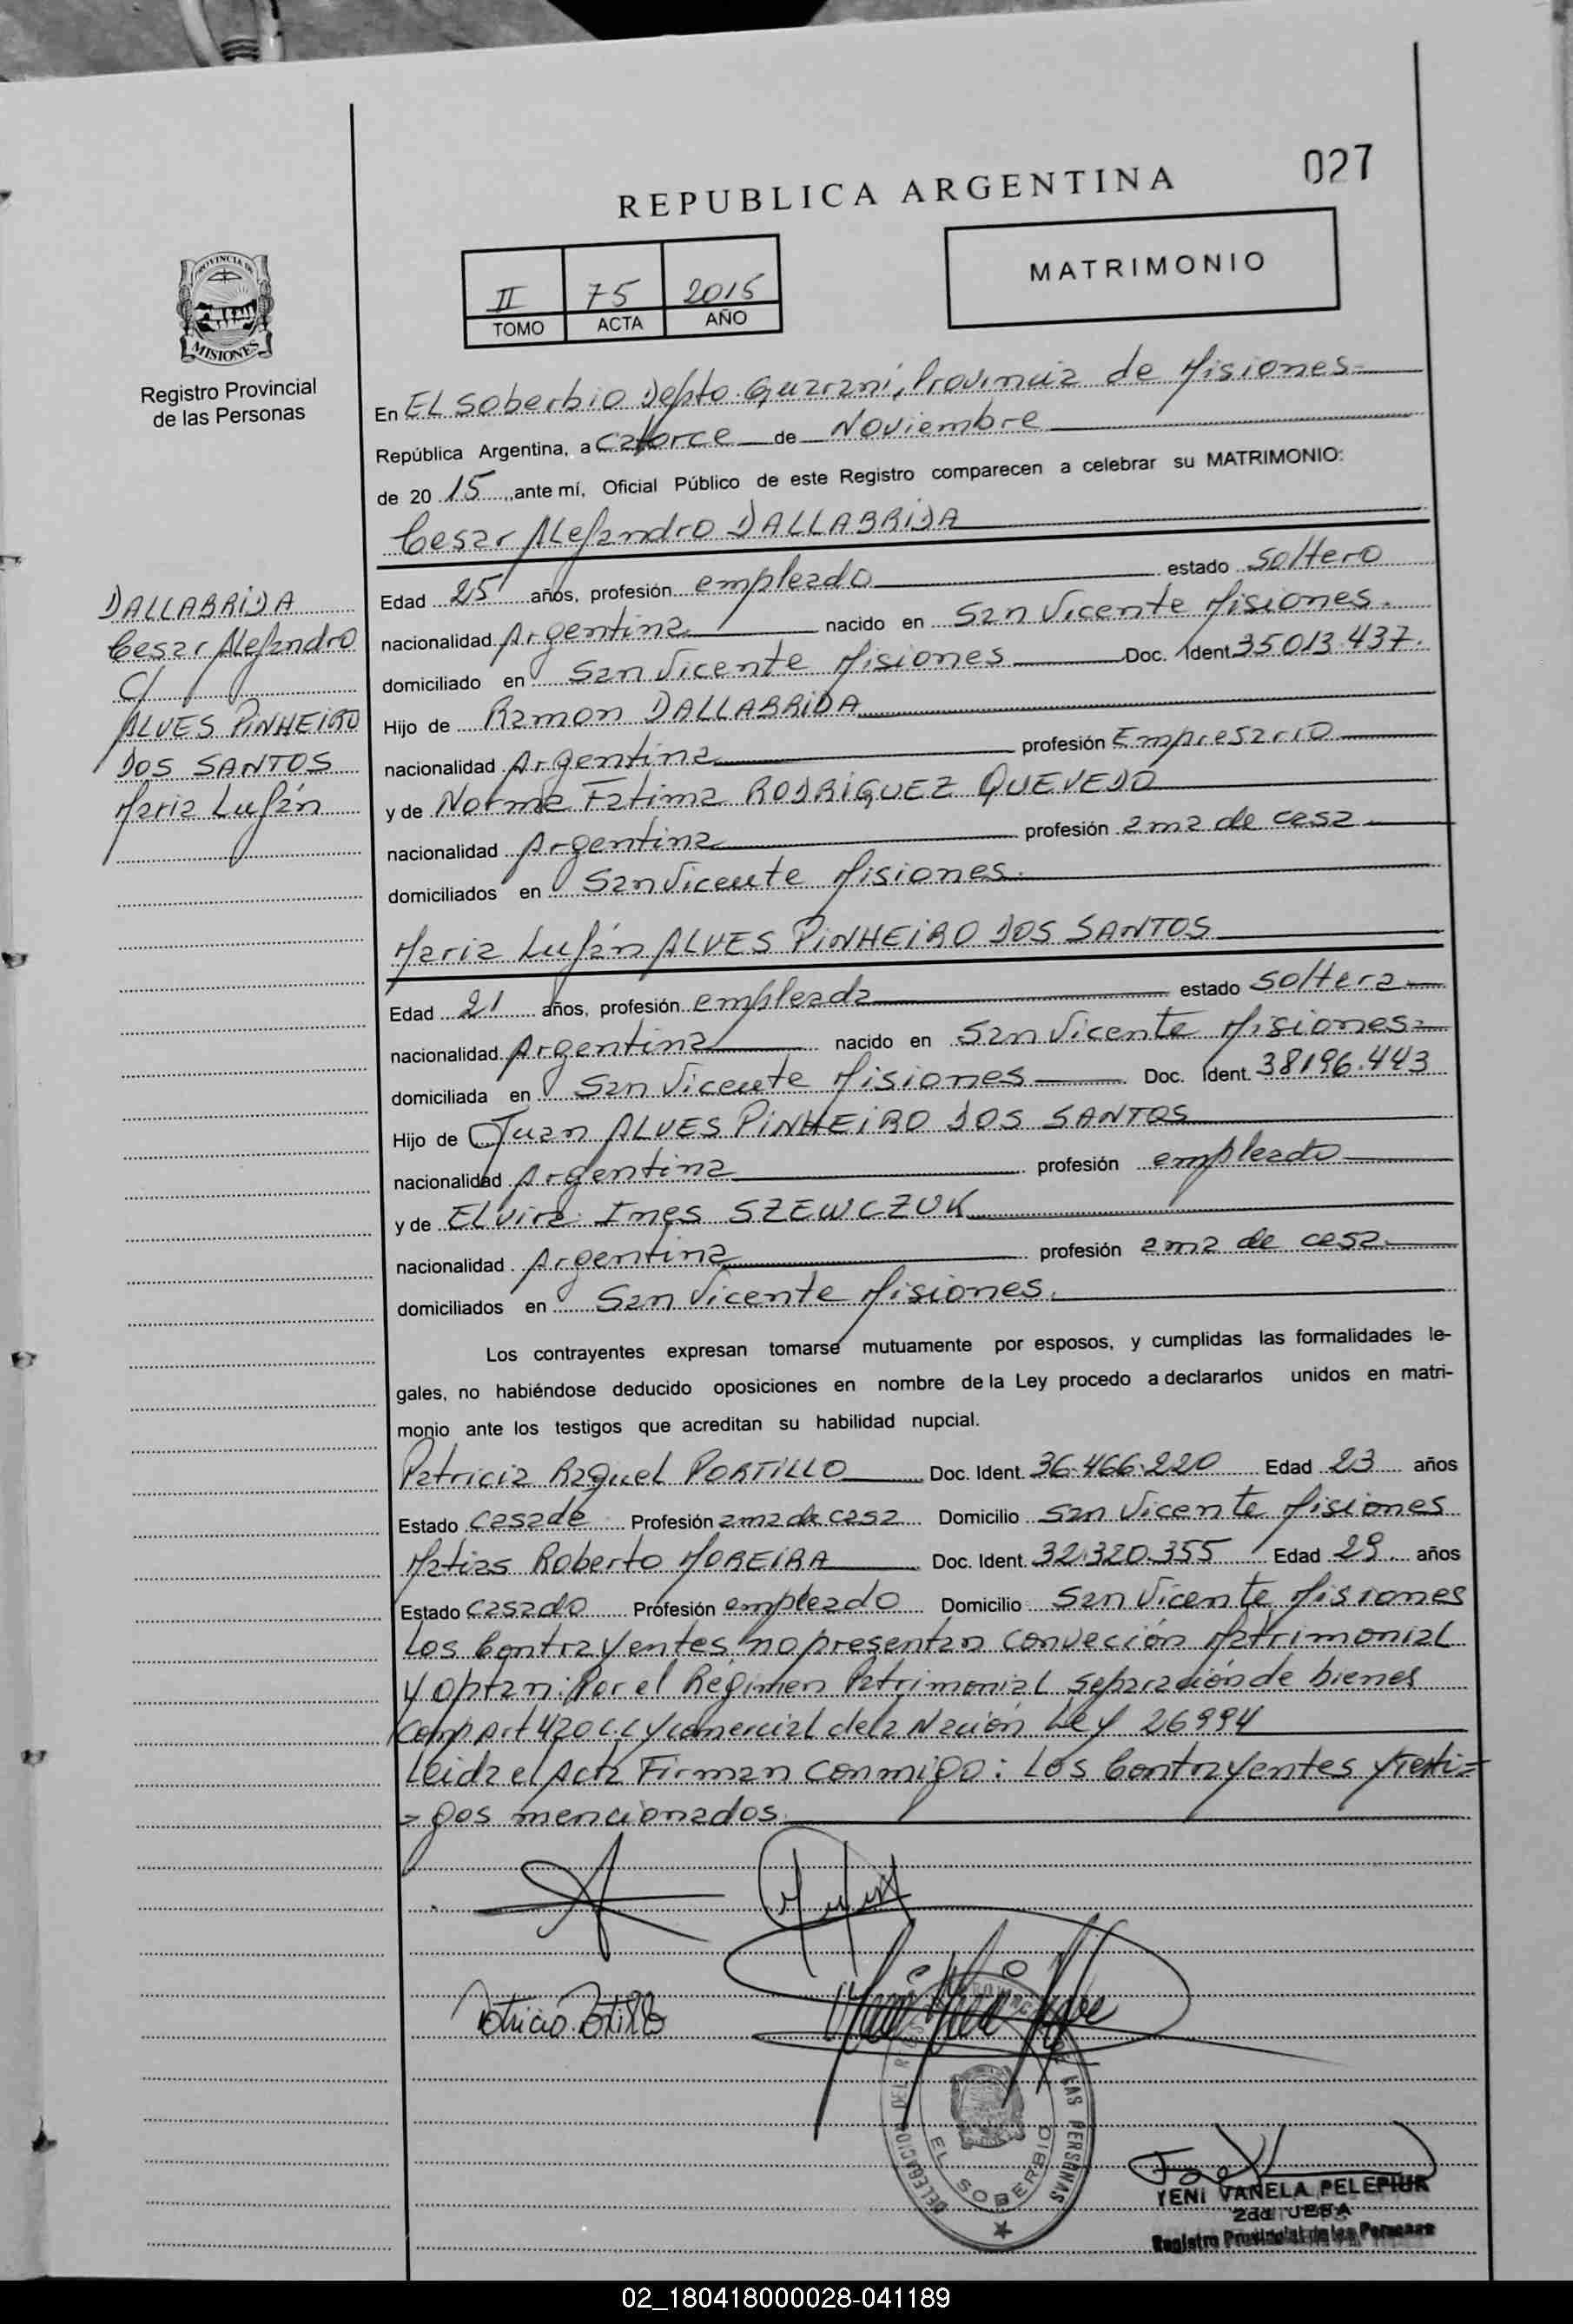 027
REPUBLICA ARGENTINA
PROVINCIA DE
MISIONES
Registro Provincial
de las Personas
II 75 2015
TOMO ACTA AÑO
MATRIMONIO
En El Soberbio Depto. Guarani, Provincia de Misiones=
República Argentina, a Catorce de Noviembre
de 20 15 ,ante mí, Oficial Público de este Registro comparecen a celebrar su MATRIMONIO:
Cesar Alejandro DALLABRIDA
Edad 25 años, profesión empleado estado Soltero
nacionalidad Argentina nacido en San Vicente Misiones.
domiciliado en San Vicente Misiones Doc. Ident 35013.437.
Hijo de Ramon DALLABRIDA
nacionalidad Argentina profesión Empresario
y de Norma Fatima RODRIGUEZ QUEVEDO
nacionalidad Argentina profesión ama de casa
domiciliados en San Vicente Misiones.
DALLABRIDA
Cesar Alejandro
C/
ALVES PINHEIRO
DOS SANTOS
Maria Luján
Maria Luján ALVES PINHEIRO DOS SANTOS
Edad 21 años, profesión empleada estado Soltera
nacionalidad Argentina nacido en San Vicente Misiones=
domiciliada en San Vicente Misiones Doc. Ident. 38196.443
Hijo de Juan ALVES PINHEIRO DOS SANTOS
nacionalidad Argentina profesión empleado
y de Elvira Ines SZEWCZUK
nacionalidad Argentina profesión ama de casa
domiciliados en San Vicente Misiones.
Los contrayentes expresan tomarse mutuamente por esposos, y cumplidas las formalidades le-
gales, no habiéndose deducido oposiciones en nombre de la Ley procedo a declararlos unidos en matri-
monio ante los testigos que acreditan su habilidad nupcial.
Patricia Raquel PORTILLO Doc. Ident. 36.466.220 Edad 23 años
Estado Casada Profesión ama de casa Domicilio San Vicente Misiones
Matias Roberto MOREIRA Doc. Ident. 32.320.355 Edad 29 años
Estado Casado Profesión empleado Domicilio San Vicente Misiones
Los Contrayentes no presentan conveción Matrimonial
y optan Por el Régimen Patrimonial separación de bienes
Conf Art 420 C.C y comercial dela Nación Ley 26994
Leida el Acta Firman conmigo: Los Contrayentes y testi=
=gos mencionados.
Patricia Portillo
DELEGACION DEL REGISTRO PROVINCIAL DE LAS PERSONAS
EL SOBERBIO
YENI VANELA PELEPIUK
2da JEFA
Registro Provincial de las Personas
02_180418000028-041189